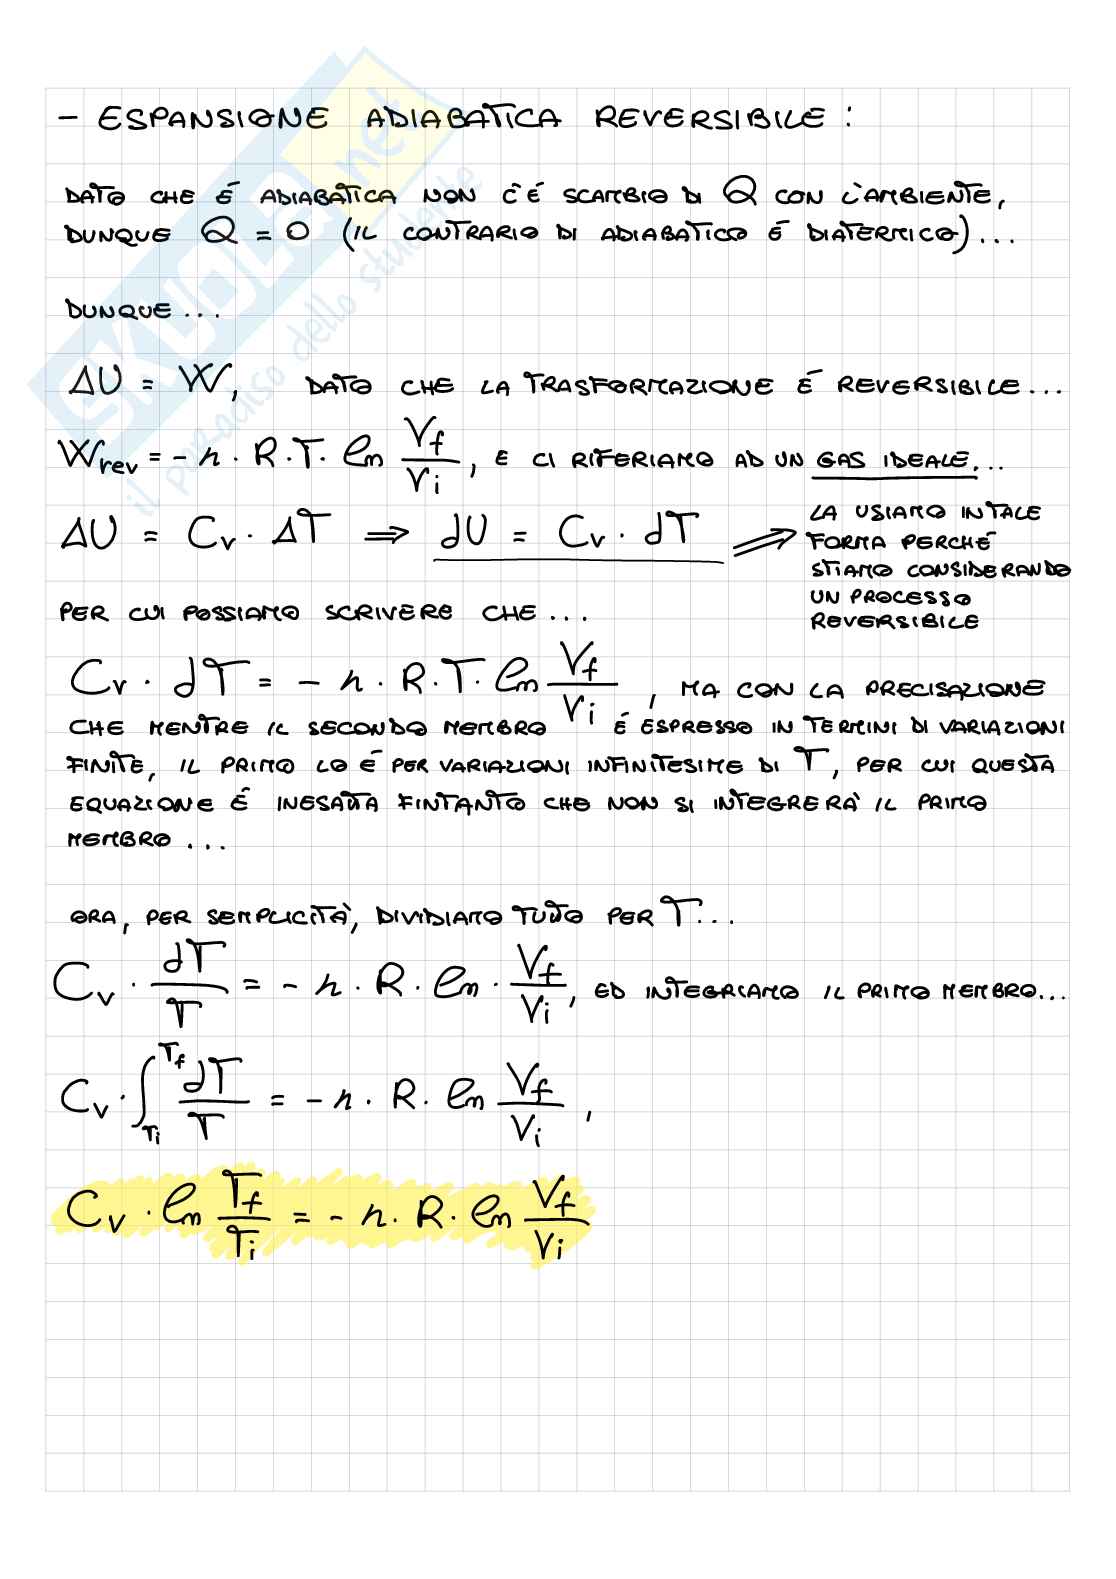 - ESPANSIONE ADIABATICA REVERSIBILE :
DATO CHE É ADIABATICA NON C'É SCAMBIO DI Q CON L'AMBIENTE,
DUNQUE Q = 0 (IL CONTRARIO DI ADIABATICO É DIATERMICO) ...
DUNQUE ...
ΔU = W, DATO CHE LA TRASFORMAZIONE É REVERSIBILE ...
Wrev = - n · R · T · ln Vf/Vi, E CI RIFERIAMO AD UN GAS IDEALE...
ΔU = Cv · ΔT ⇒ dU = Cv · dT ⇒ LA USIAMO IN TALE
FORMA PERCHÉ
STIAMO CONSIDERANDO
UN PROCESSO
REVERSIBILE
PER CUI POSSIAMO SCRIVERE CHE ...
Cv · dT = - n · R · T · ln Vf/Vi, MA CON LA PRECISAZIONE
CHE MENTRE IL SECONDO MEMBRO É ESPRESSO IN TERMINI DI VARIAZIONI
FINITE, IL PRIMO LO É PER VARIAZIONI INFINITESIME DI T, PER CUI QUESTA
EQUAZIONE É INESATTA FINTANTO CHE NON SI INTEGRERÀ IL PRIMO
MEMBRO ...
ORA, PER SEMPLICITÀ, DIVIDIAMO TUTTO PER T ...
Cv · dT/T = - n · R · ln · Vf/Vi, ED INTEGRIAMO IL PRIMO MEMBRO...
Cv · ∫Ti^Tf dT/T = - n · R · ln Vf/Vi,
Cv · ln Tf/Ti = - n · R · ln Vf/Vi
SKUOLA.net
il paradiso dello studente